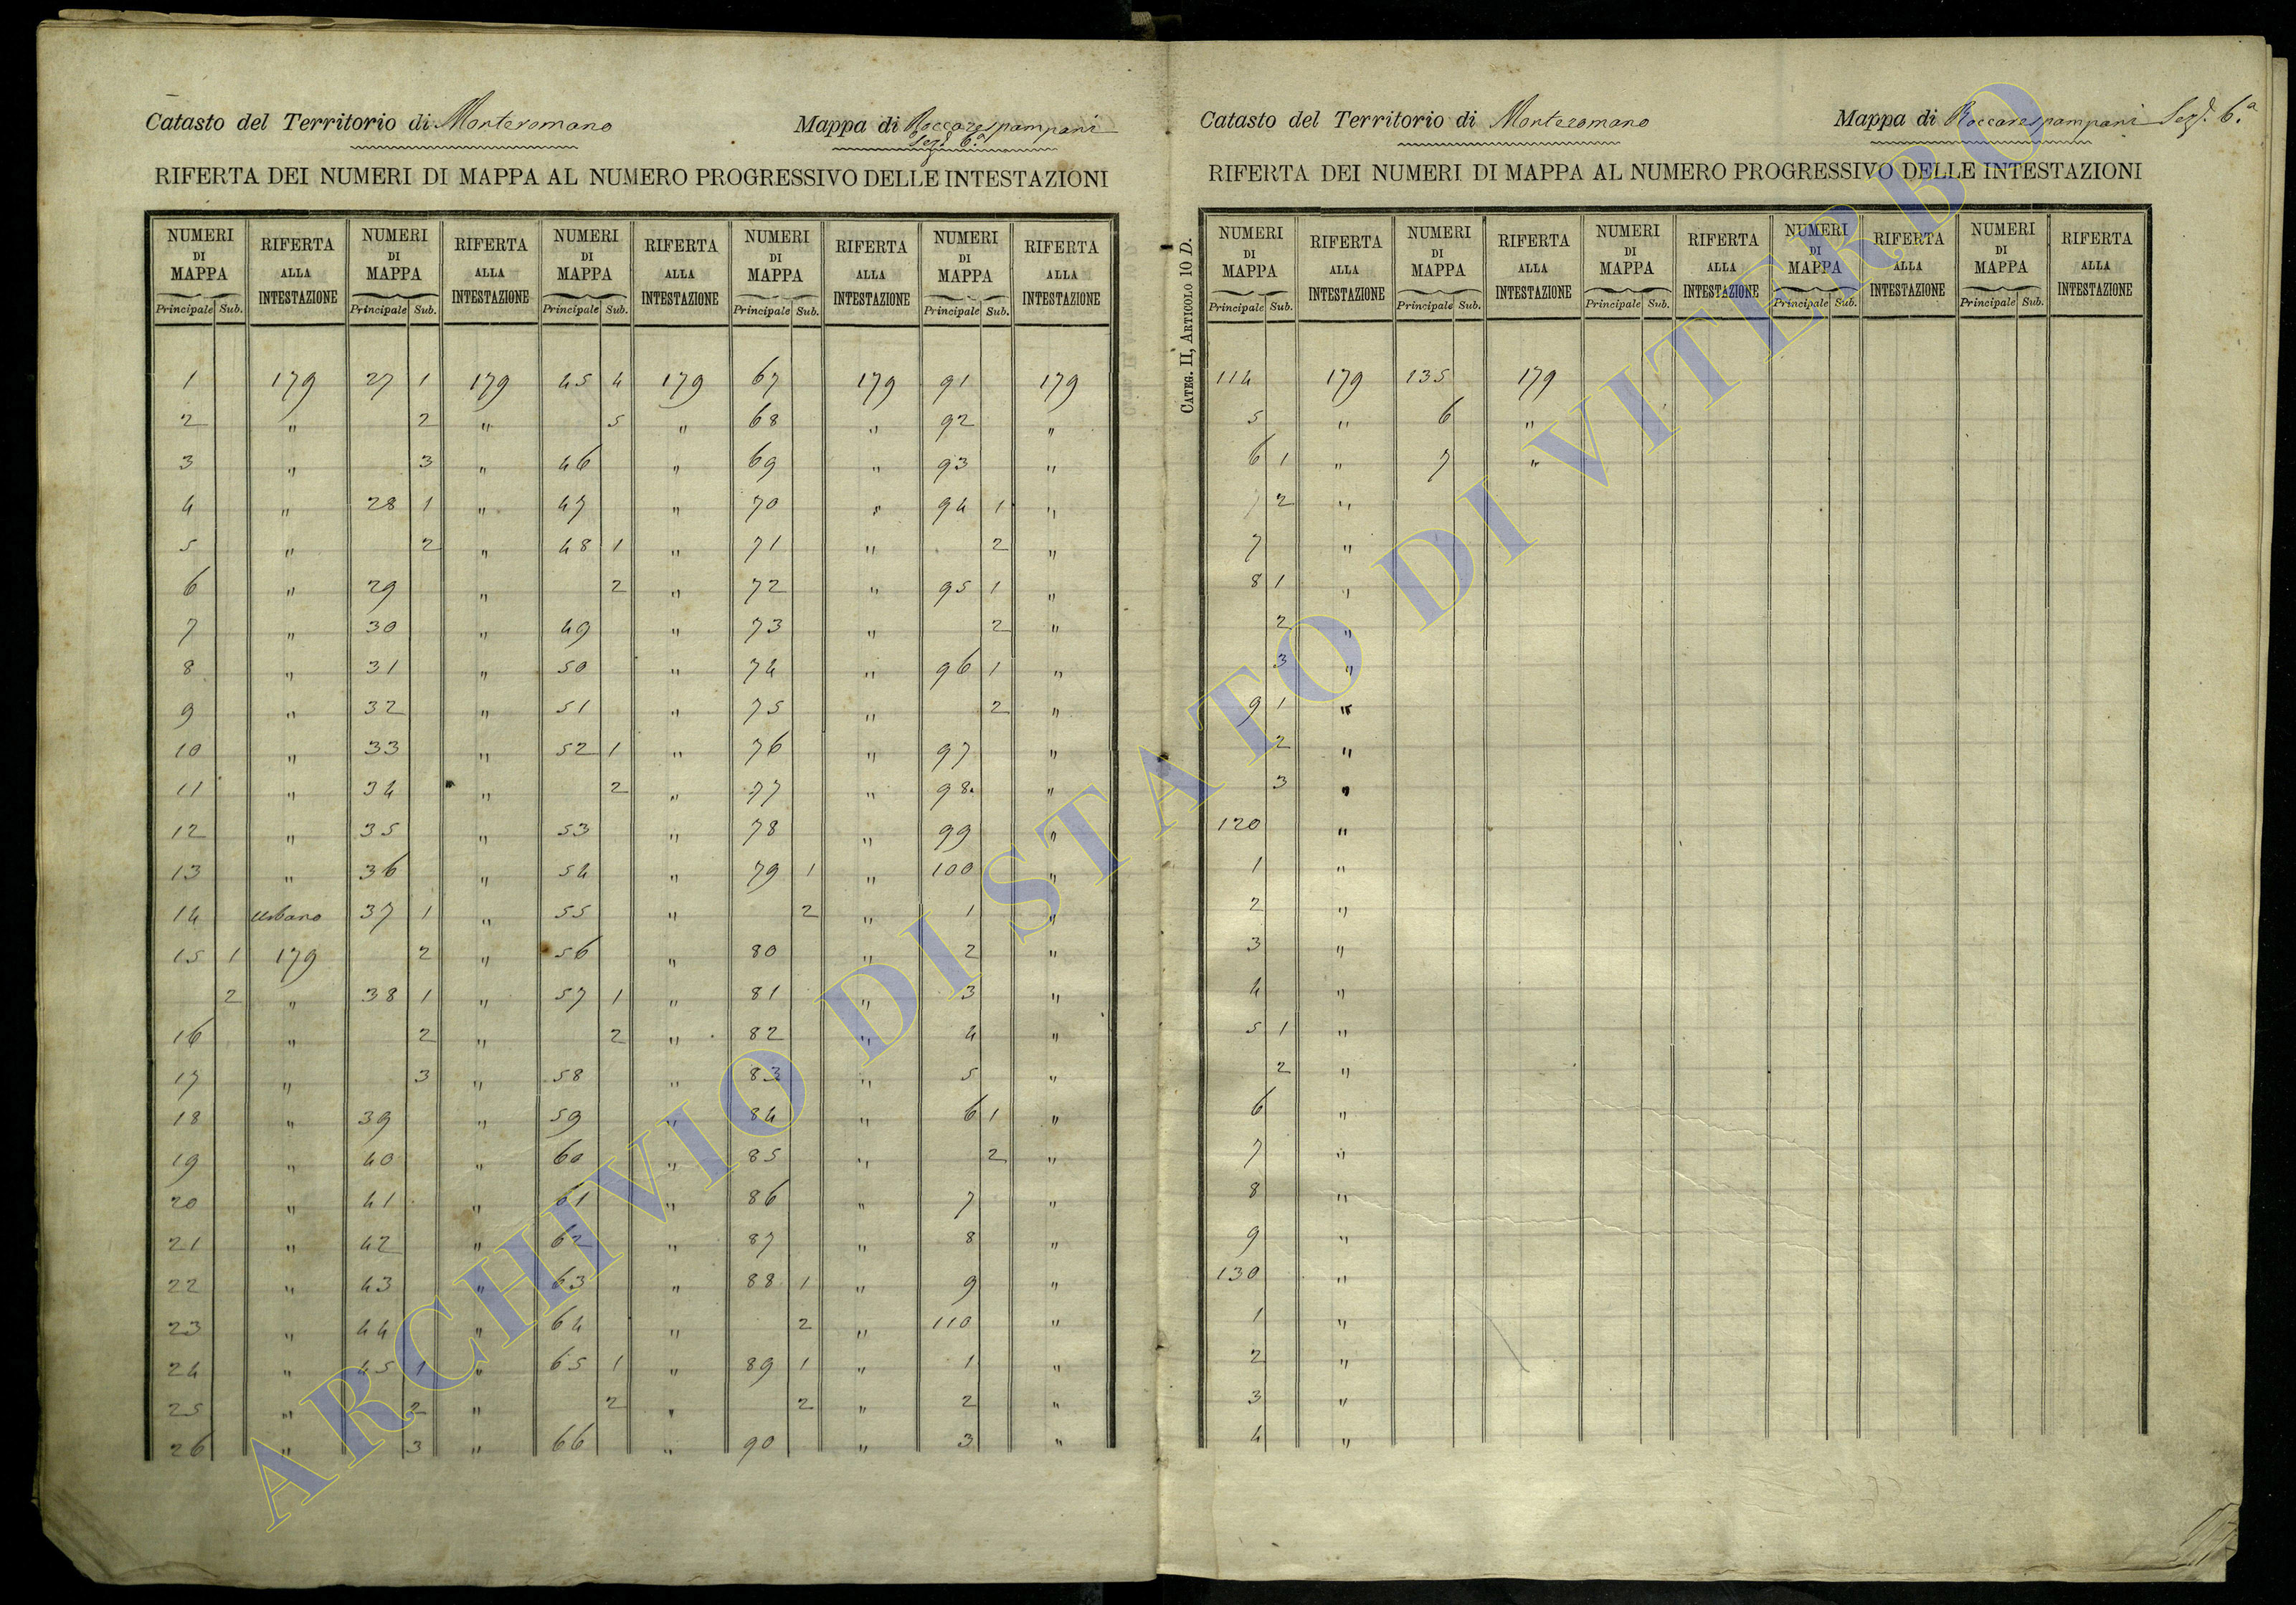 Catasto del Territorio di Monteromano Mappa di Roccarespampani
Sez. 6.a
RIFERTA DEI NUMERI DI MAPPA AL NUMERO PROGRESSIVO DELLE INTESTAZIONI
NUMERI DI MAPPA RIFERTA ALLA INTESTAZIONE NUMERI DI MAPPA RIFERTA ALLA INTESTAZIONE NUMERI DI MAPPA RIFERTA ALLA INTESTAZIONE NUMERI DI MAPPA RIFERTA ALLA INTESTAZIONE NUMERI DI MAPPA RIFERTA ALLA INTESTAZIONE
Principale Sub. Principale Sub. Principale Sub. Principale Sub. Principale Sub.
1 179 27 1 179 45 4 179 67 179 91 179
2 " 2 " 5 " 68 " 92 "
3 " 3 " 46 " 69 " 93 "
4 " 28 1 " 47 " 70 " 94 1 "
5 " 2 " 48 1 " 71 " 2 "
6 " 29 " 2 " 72 " 95 1 "
7 " 30 " 49 " 73 " 2 "
8 " 31 " 50 " 74 " 96 1 "
9 " 32 " 51 " 75 " 2 "
10 " 33 " 52 1 " 76 " 97 "
11 " 34 " 2 " 77 " 98 "
12 " 35 " 53 " 78 " 99 "
13 " 36 " 54 " 79 1 " 100 "
14 Urbano 37 1 " 55 " 2 " 1 "
15 1 179 2 " 56 " 80 " 2 "
2 " 38 1 " 57 1 " 81 " 3 "
16 " 2 " 2 " 82 " 4 "
17 " 3 " 58 " 83 " 5 "
18 " 39 " 59 " 84 " 6 1 "
19 " 40 " 60 " 85 " 2 "
20 " 41 " 61 " 86 " 7 "
21 " 42 " 62 " 87 " 8 "
22 " 43 " 63 " 88 1 " 9 "
23 " 44 " 64 " 2 " 110 "
24 " 45 1 " 65 1 " 89 1 " 1 "
25 " 2 " 2 " 2 " 2 "
26 " 3 " 66 " 90 " 3 "
CATEG. II, ARTICOLO 10 D.
Catasto del Territorio di Monteromano Mappa di Roccarespampani Sez. 6.a
RIFERTA DEI NUMERI DI MAPPA AL NUMERO PROGRESSIVO DELLE INTESTAZIONI
NUMERI DI MAPPA RIFERTA ALLA INTESTAZIONE NUMERI DI MAPPA RIFERTA ALLA INTESTAZIONE NUMERI DI MAPPA RIFERTA ALLA INTESTAZIONE NUMERI DI MAPPA RIFERTA ALLA INTESTAZIONE NUMERI DI MAPPA RIFERTA ALLA INTESTAZIONE
Principale Sub. Principale Sub. Principale Sub. Principale Sub. Principale Sub.
114 179 135 179
5 " 6 "
6 1 " 7 "
2 "
7 "
8 1 "
2 "
3 "
9 1 "
2 "
3 "
120 "
1 "
2 "
3 "
4 "
5 1 "
2 "
6 "
7 "
8 "
9 "
130 "
1 "
2 "
3 "
4 "
ARCHIVIO DI STATO DI VITERBO